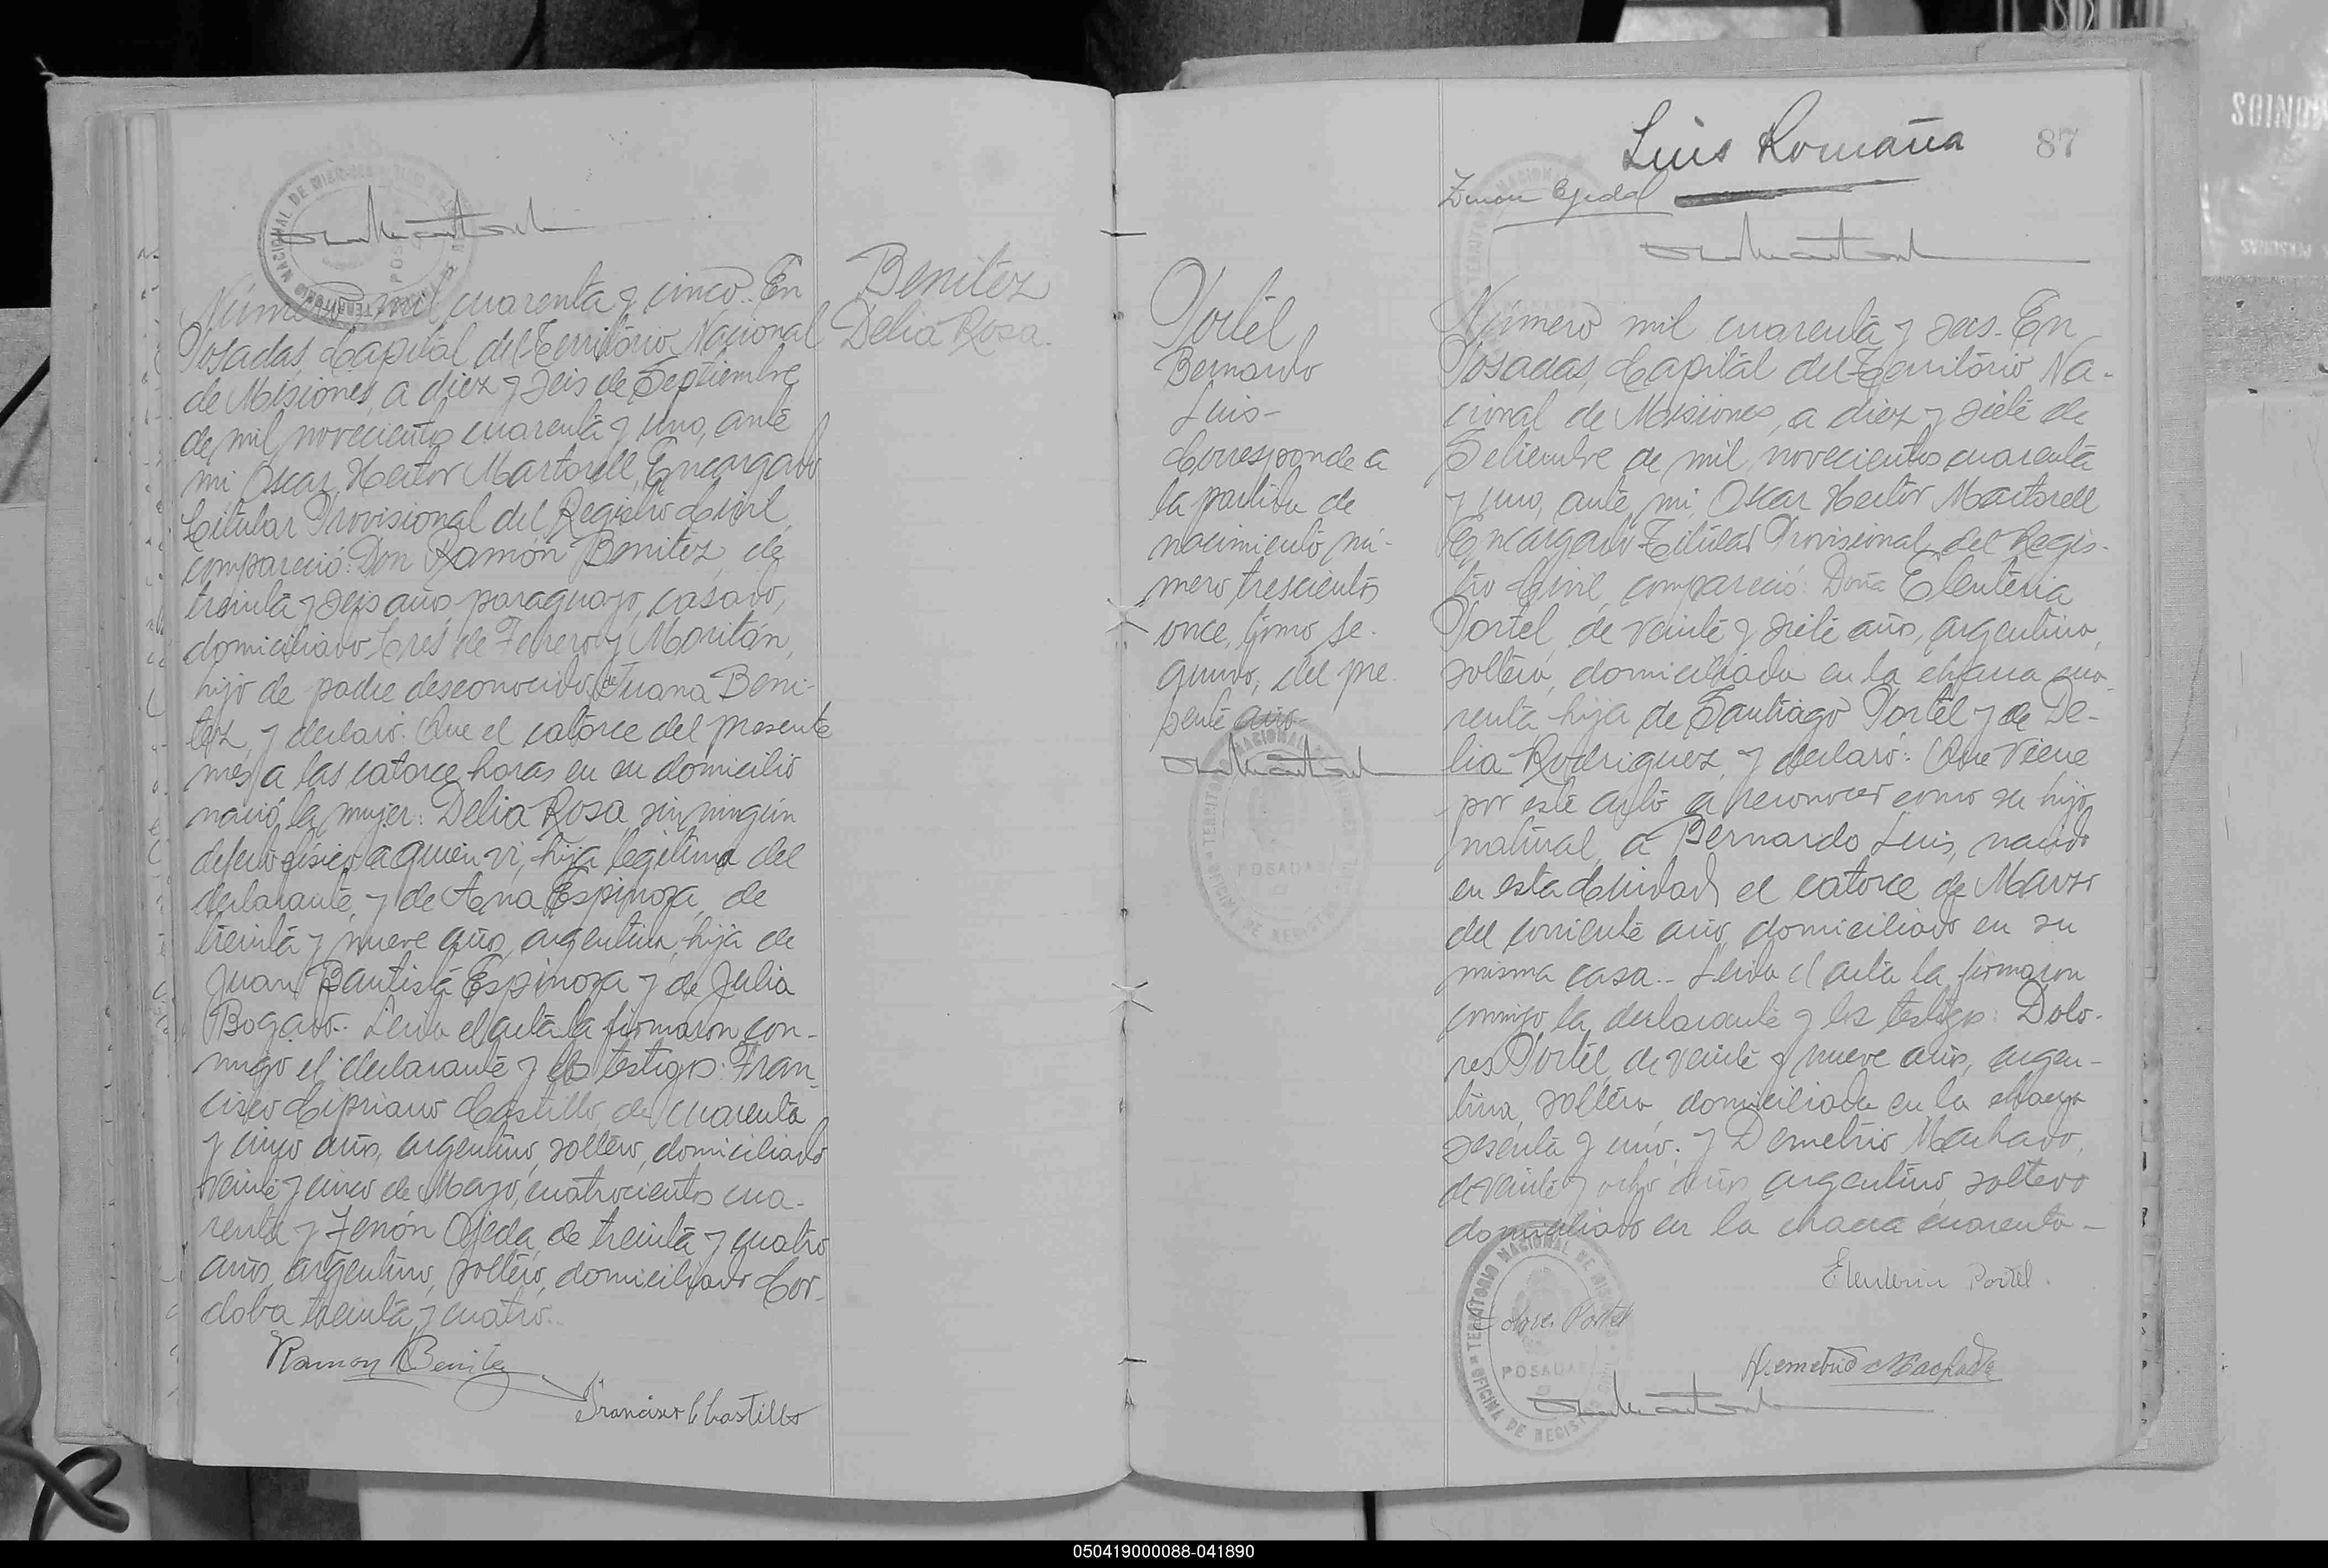 Número mil cuarenta y cinco. En
Posadas, Capital del Territorio Nacional
de Misiones, a diez y seis de Septiembre
de mil novecientos cuarenta y uno, ante
mi Oscar Hector Martorell, Encargado
Titular Provisional del Registro Civil,
compareció: Don Ramón Benitez, de
treinta y seis años, paraguayo, casado,
domiciliado tres de Febrero y Moritán,
hijo de padre desconocido y de Juana Beni-
tez, y declaró: Que el catorce del presente
mes, a las catorce horas en su domicilio
nació la mujer: Delia Rosa, sin ningún
defecto físico a quien vi, hija legitima del
declarante, y de Ana Espinoza, de
treinta y nueve años, argentina, hija de
Juan Bautista Espinoza y de Julia
Bogado. Leida el acta la firmaron con-
migo el declarante y los testigos: Fran-
cisco Cipriano Castillo, de cuarenta
y cinco años, argentino, soltero, domiciliado
veinte y cinco de Mayo, cuatrocientos cua-
renta y Zenón Ojeda, de treinta y cuatro
años, argentino, soltero, domiciliado Cor-
doba treinta y cuatro.
Ramon Benitez
Francisco C Castillo
Benitez
Delia Rosa.
TERRITORIO NACIONAL DE MISIONES
POSADAS
Luis Romaña
87
Zenon Ojeda
Portel
Bernardo
Luis-
Corresponde a
la partida de
nacimiento nú-
mero trescientos
once, tomo se-
gundo, del pre-
sente año-
TERRITORIO NACIONAL DE MISIONES
POSADAS
OFICINA DE REGISTRO CIVIL
Número mil cuarenta y seis- En
Posadas, Capital del Territorio Na-
cional de Misiones, a diez y siete de
Setiembre de mil novecientos cuarenta
y uno, ante mi, Oscar Hector Martorell
Encargado Titular Provisional del Regis-
tro Civil, compareció: Doña Eleuteria
Portel, de veinte y siete años, argentina,
soltera, domiciliada en la chacra cua-
renta hija de Santiago Portel y de De-
lia Rodriguez, y declaró: Que viene
por este acto a reconocer como su hijo
natural, a Bernardo Luis, nacido
en esta Ciudad el catorce de Marzo
del corriente año, domiciliado en su
misma casa.- Leida el acta la firmaron
conmigo la declarante y los testigos: Dolo-
res Portel, de veinte y nueve años, argen-
tina, soltera domiciliada en la chacra
sesenta y uno; y Demetrio Machado,
de veinte y ocho años argentino, soltero
domiciliado en la chacra cuarenta-
Eleuteria Portel.
Dolores Portel
Demetrio Machado
TERRITORIO NACIONAL DE MISIONES
POSADAS
OFICINA DE REGISTRO CIVIL
050419000088-041890